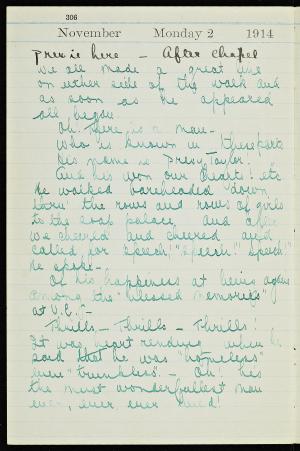 306
November Monday 2 1914
Prex is here — After chapel
we all made a great line
on either side of the walk and
as soon as he appeared
all began
Oh, There is a man —
Who is known in these parts
his name is Prexy Taylor.
And his won our hearts! etc
He walked bareheaded down
thru the rows and rows of girls
to the soap palace, and after
we cheered and cheered and
called for speech! "Speech!" "Speech!"
he spoke —
Of his happiness at being again
among the "blessed memories"
at V.C. —
Thrills — Thrills — Thrills!
It was heart rending when he
said that he was "homeless"
even "trunkless". — Oh! he's
the most wonderfullest man
ever, ever, ever lived!